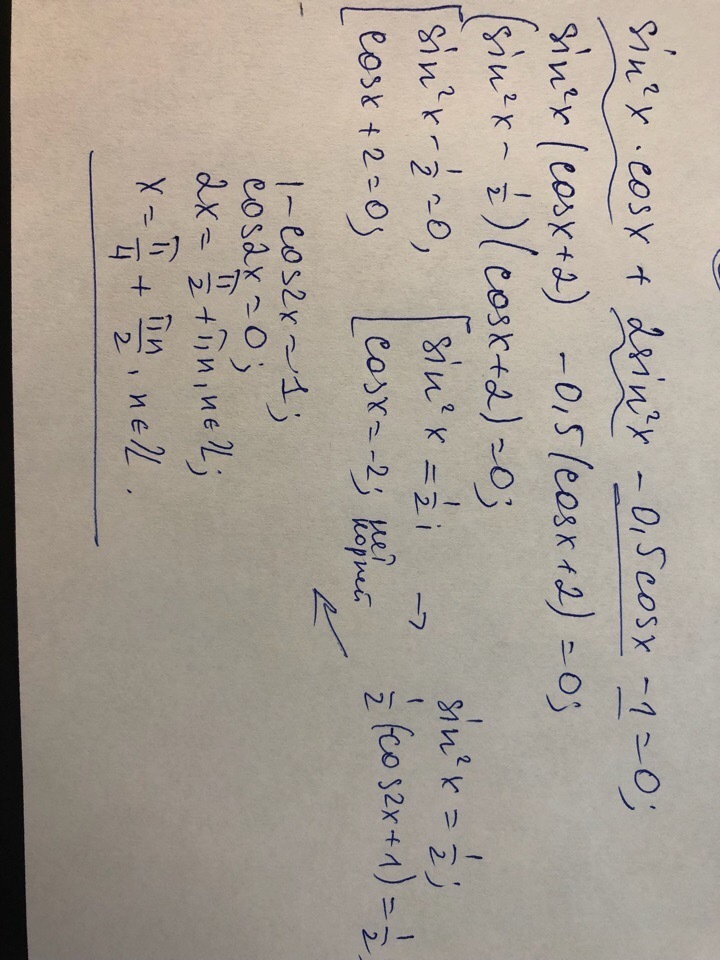 sin²x · cosx + 2sin²x - 0,5cosx - 1 = 0;
sin²x (cosx+2) - 0,5(cosx+2) = 0;
(sin²x - 1/2)(cosx+2) = 0;
[sin²x - 1/2 = 0,
cosx + 2 = 0;
[sin²x = 1/2; →
cosx = -2; нет корней
sin²x = 1/2;
1/2 (cos2x+1) = 1/2,
1 - cos2x = 1;
cos2x = 0;
2x = π/2 + πn, n∈Z;
x = π/4 + πn/2, n∈Z.